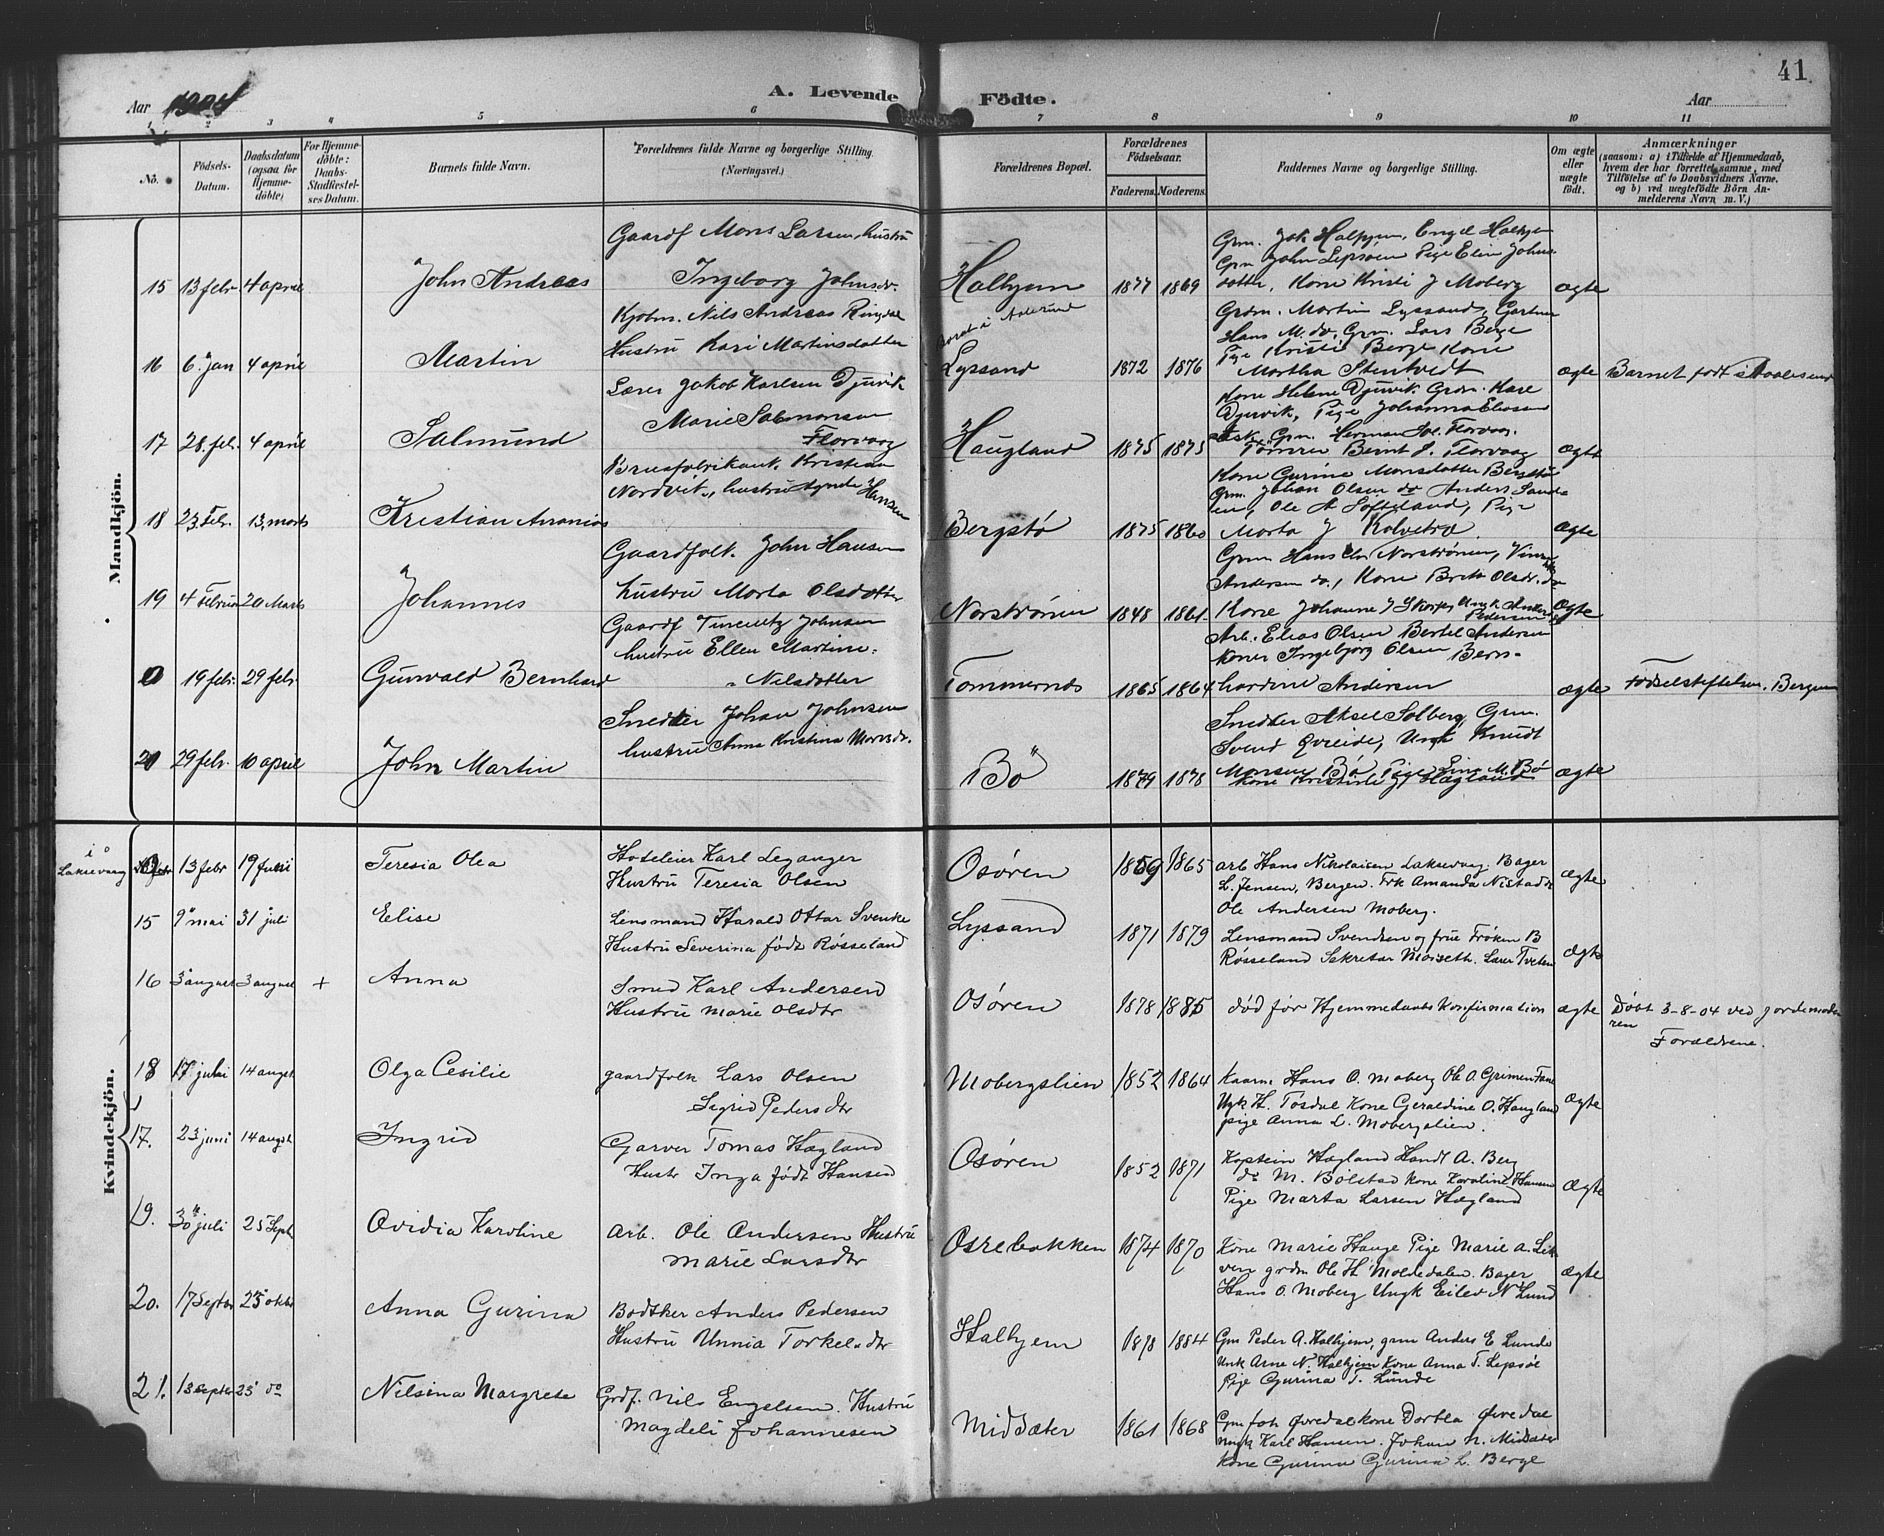 41
Aar 1904
A. Levende Födte.
Aar
1 2 3 4 5 6 7 8 9 10 11
No.
Födsels-Datum.
Daabsdatum (ogsaa for Hjemmedöbte)
For Hjemmedöbte: Daabs-Stadfæstelses Datum.
Barnets fulde Navn.
Forældrenes fulde Navne og borgerlige Stilling. (Næringsvei.)
Forældrenes Bopæl.
Forældrenes Födselsaar.
Faderens. Moderens.
Faddernes Navne og borgerlige Stilling.
Om ægte eller uægte födt.
Anmærkninger
(saasom: a) i Tilfælde af Hjemmedaab, hvem der har forrettet samme, med Tilföielse af to Daabsvidners Navne. og b) ved uægtefödte Börn Anmelderens Navn m. V.)
Mandkjön.
15 13 febr 4 april John Andreas
Gaardf Mons Larsen, hustru
Ingeborg Johnsdr.
Halhjem 1877 1869
Grm. Jak Halhjem, Engel Halhjem
Grm John Lepsöen Pige Elin Johns
datter, Kone Kristi J Moberg
ægte
16 6 jan 4 april Martin
Kjøbm. Nils Andreas Ringdal
Hustru Kari Martinsdatter
Lyssand 1872 1876
Grdm. Martin Lyssand, Gartner
Hans M. do, Grm. Lars Berge
Pige Kristi Berge Kone
Martha Stentvedt
ægte Barnet født i Aalesund
17 28. feb. 4 april Salmund
Lærer Jakob Karlsen Djuvik
Marie Salmonsen
Florvaag
Haugland 1875 1875
Kone Helene Djuvik Grdm. Kare
Djuvik, Pige Johanna Eliasen
Ask, Grm. Herman Sal. Florvaag.
Tømrer Bernt S. Florvaag
ægte
18 23. Febr. 13. marts Kristian Ananias
Brusfabrikant. Kristian
Nordvik, hustru Agnete Hansen
Bergstø 1875 1860
Kone Gurine Monsdatter Bergstø
Grm. Johan Olsen do Anders Sande
Ole A Softeland, Pige
Marta J Kolvetra
ægte
19 4 Februar 20 Marts Johannes
Gaardfolk. John Hansen
hustru Marta Olsdatter
Norstrønen 1848 1861
Grm Hans Chr Norstrønen,
Andersen do., Kone Brita Olsdr. do
Kone Johanne J Skorpen Ungk Anders
Pedersen
ægte
20 19 febr. 29 febr. Gunvald Bernhard
Gaardf Vincentz Johnsen
hustru Ellen Martine
Nilsdatter
Tømmernes 1865 1864
Arb. Elias Olsen Bertel Andersen
koner Ingebjørg Olsen Bern-
hardine Andersen
ægte Fødselstiftelsen, Bergen
21 29 febr. 10 april John Martin
Smedker Johan Johnsen
hustru Anna Kristina Monsdr.
Bö 1879 1878
Smedker Aksel Solberg, Grm.
Svend Øvreide, Ungk Knudt
Monsen Bø Pige Lina M. Bø
Kone Kristine Hægland
ægte
Kvindekjön.
i Laksevaag 13 febr 19 Juni Teresia Olea
Hoteleier Karl Leganger
Hustru Teresia Olsen
Osøren 1869 1865
arb Hans Nikolaisen Laksevaag. Bager
L. Jensen, Bergen. Frk Amanda Nistad
Ole Andersen Moberg.
ægte
15 9 mai 31 juli Elise
Lensmand Harald Ottar Svenke
Hustru Severina født Røsseland
Lyssand 1871 1879
Lensmand Svendsen og frue Frøken B
Røsseland Sekretær Moiseth. Lærer Tveten
ægte
16 3 august 3 august + Anna
Smed Karl Andersen
Hustru Marie Olsdtr
Osøren 1878 1885
død før Hjemmedaabs konfirmation
ægte Døbt 3-8-04 ved jordemoderen
Forældrene.
18 17 juli 14 augst Olga Cesilie
gaardfolk Lars Olsen
Sigrid Pedersdtr
Mobergslien 1852 1864
Kaarm Hans O. Moberg Ole O. Grimen Fane
Ungk H. Tøsdal Kone Geraldine O. Haugland
pige Anna L. Mobergslien.
ægte
17. 23 juni 14 augst Ingrid
Garver Tomas Hægland
Hustr Inga født Hansen
Osøren 1852 1871
Kaptein Hægland Handl A. Berg
do M. Bolstad kone Karoline Hansen
Pige Marta Larsen Hægland
ægte
19. 30 juli 25 Sept Ovidia Karoline
arb. Ole Andersen Hustru
Marie Larsdtr
Osrebakken 1874 1870
Kone Marie Hauge Pige Marie A. Lek
ven grdm Ole H Moldedalen. Bager
Hans O. Moberg Ungk Eilev N Lund
ægte
20. 17 Septbr 23 oktbr Anna Gurina
Bødtker Anders Pedersen
Hustru Unnia Torkelsdtr
Halhjem 1878 1884
Gm Peder A. Halhjem, grm Anders E Lunde
Unk Arne N. Halhjem Kone Anna T. Lepsøe
Pige Gurina T. Lunde
21. 13 septbr 23 do Nilsina Margrete
Grdf. Nils Engelsen. Hustru
Magdeli Johannesen
Midsæter 1861 1868
Gm Joh Øvredal kone Dortea Øvredal
ungk Karl Hansen. Johan N. Midsæter
Kone Gurina Gurina L. Berge